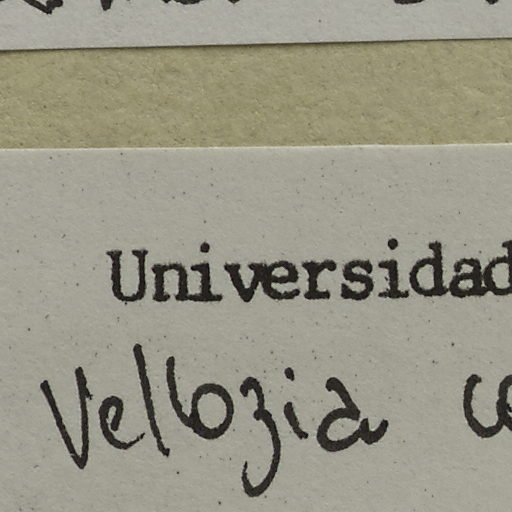 Universidad
Vellozia